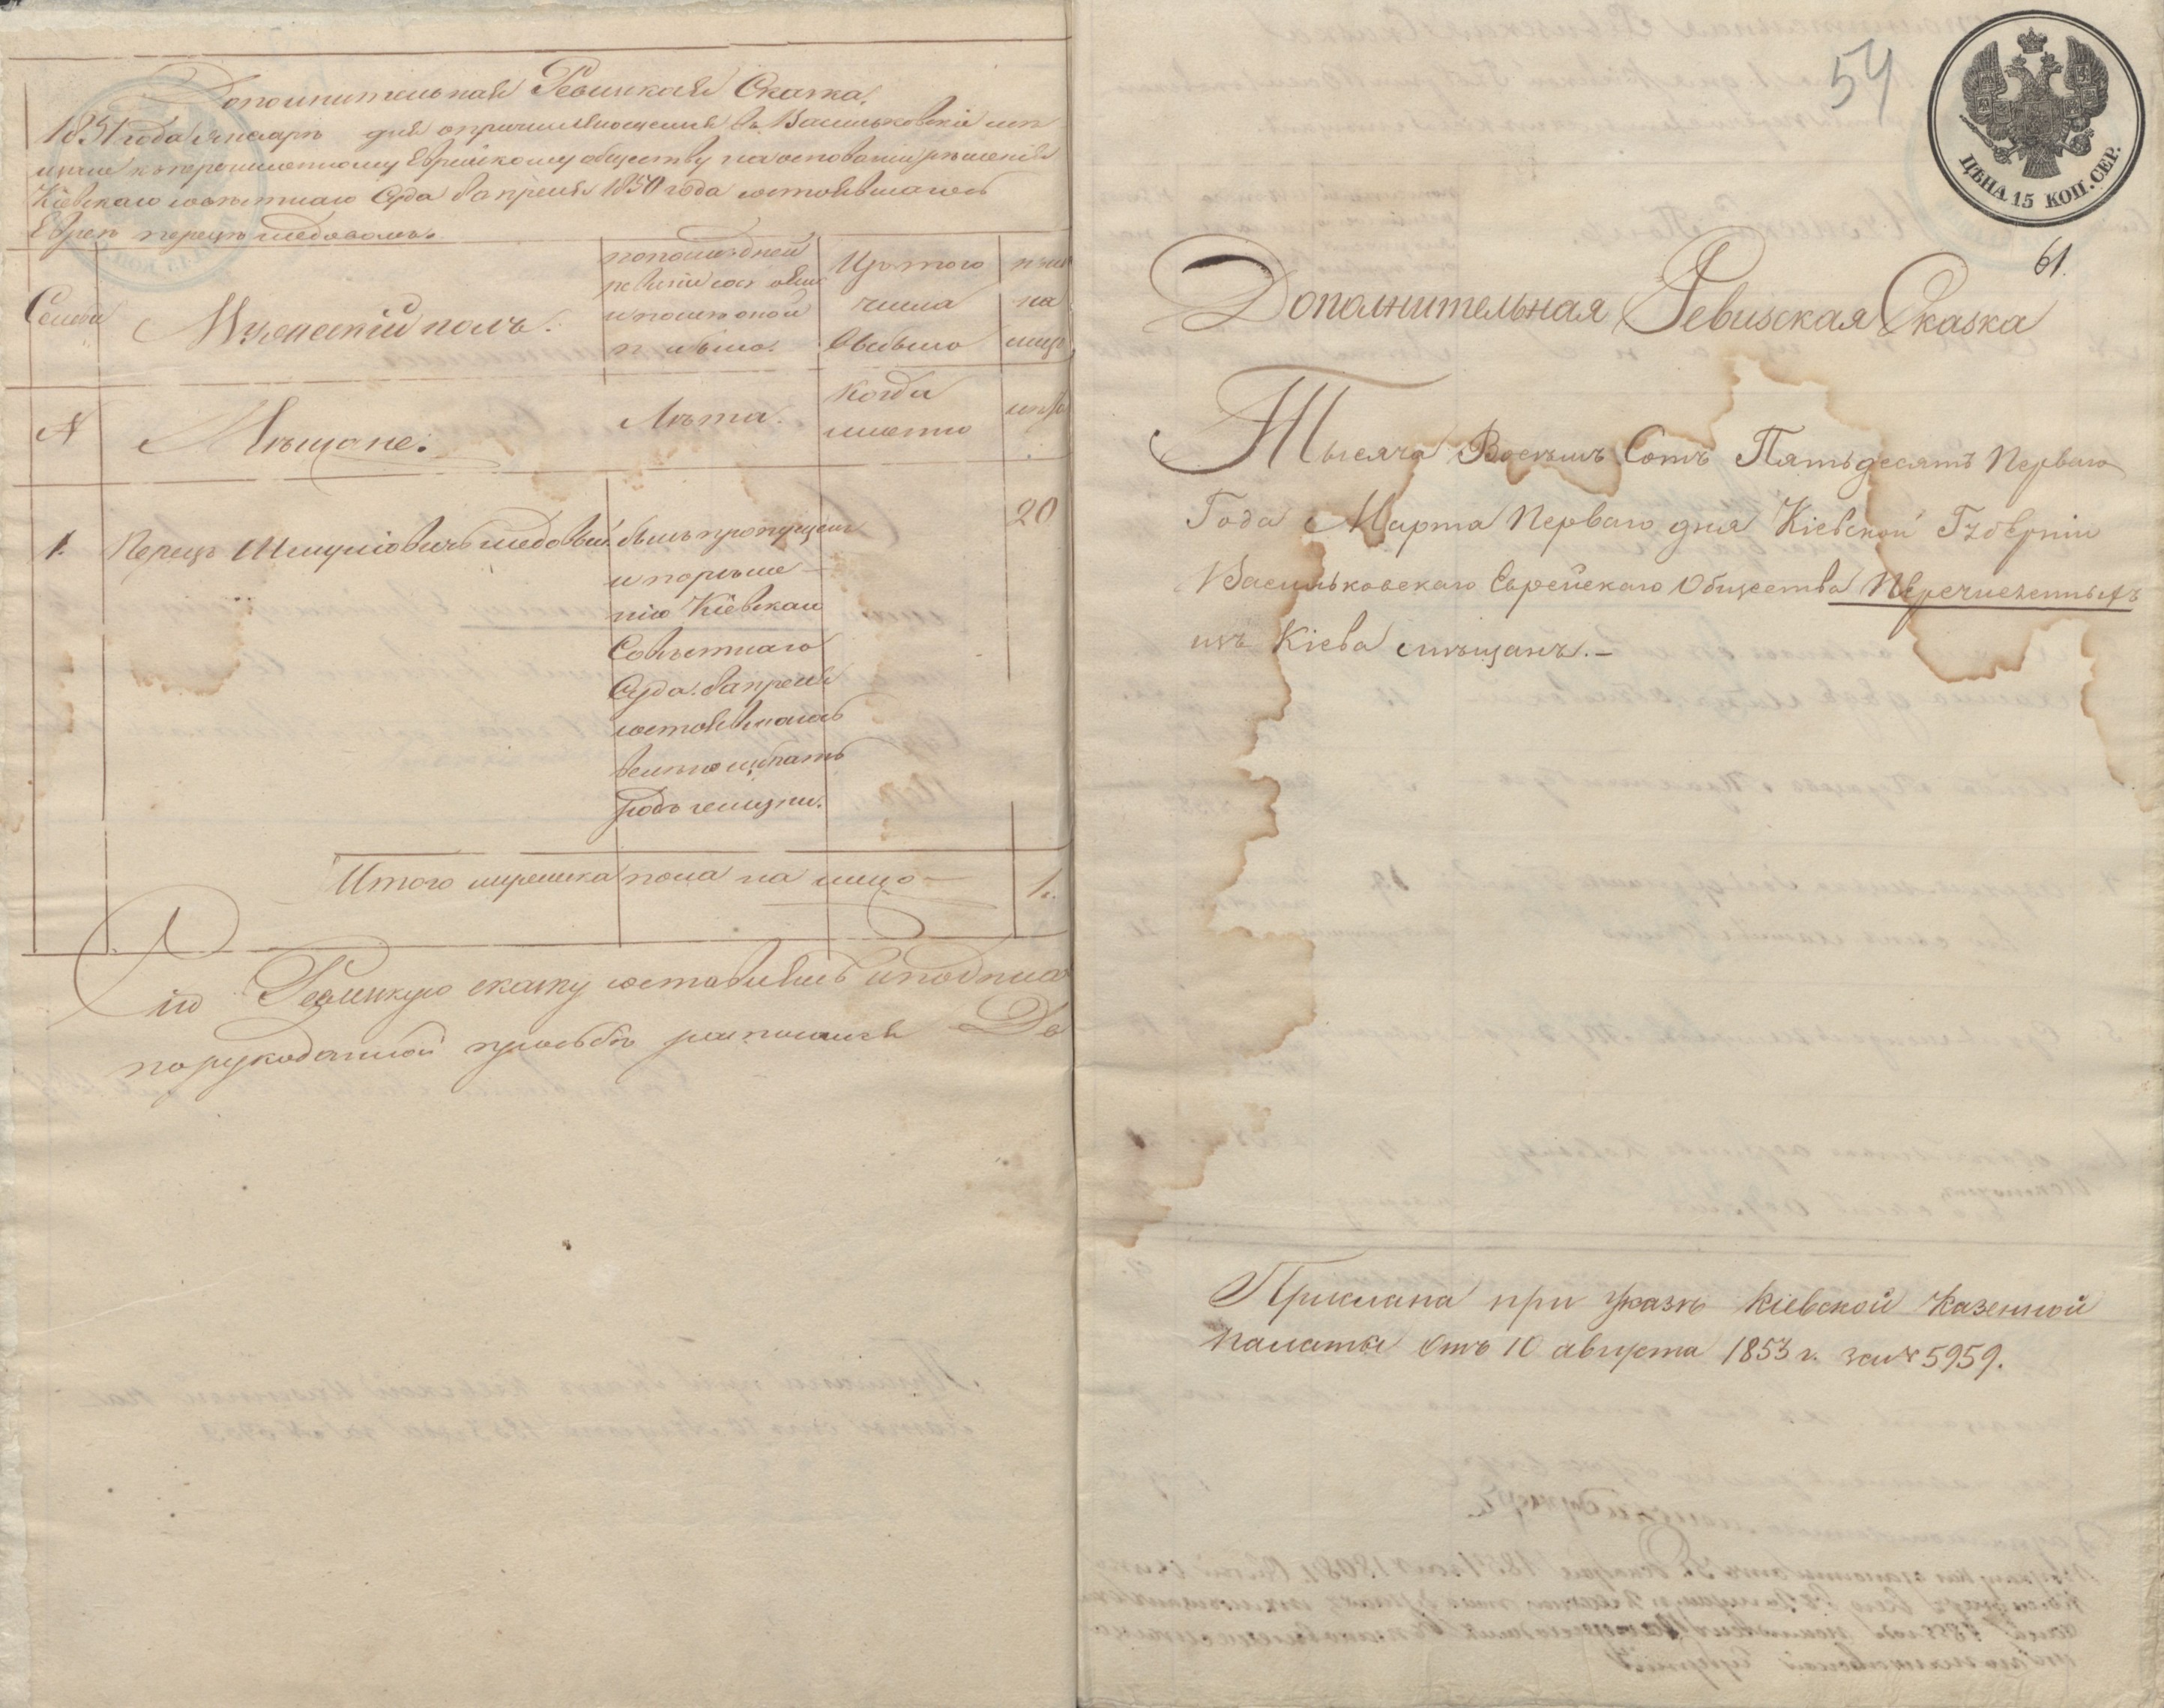 Дополнительная Ревизская Сказка,
1851 года январь дня о причисляющемся въ Васильковскіе мѣ
щане къ тамошнему Еврейскому обществу на основаніи рѣшенія
Кіевскаго Совѣстнаго Суда апреля 1850 года состоявшагося
Еврея перецъ медовомъ.
Семьи
Мужескій полъ.
по последней
ревизіи состояло
и после оной
прибыло.
Изъ того
числа
выбыло
нынѣ
на
лицо
№
Мѣщане.
Лѣта.
когда
именно
лѣта
1.
Перецъ Шмулiовичъ медовый
былъ пропущенъ
и по рѣше-
нію Кіевскаго
Совѣстнаго
Суда апреля
состоявшагося
20
Итого мужеска пола на лицо
1.
Сію Ревизкую сказку составилъ и подписа
по рукоданной просьбѣ росписался
54
ЦѢНА 15 КОП. СЕР.
61.
Дополнительная Ревизская Сказка
Тысяча Восѣмъ Сотъ Пятьдесятъ Перваго
Года Марта Перваго дня Кіевской Губерніи
Васильковскаго Еврейскаго Общества Перечисленныхъ
изъ Кіева мѣщанъ.-
Прислана при указѣ Кіевской Казенной
палаты отъ 10 августа 1853 г. за № 5959.